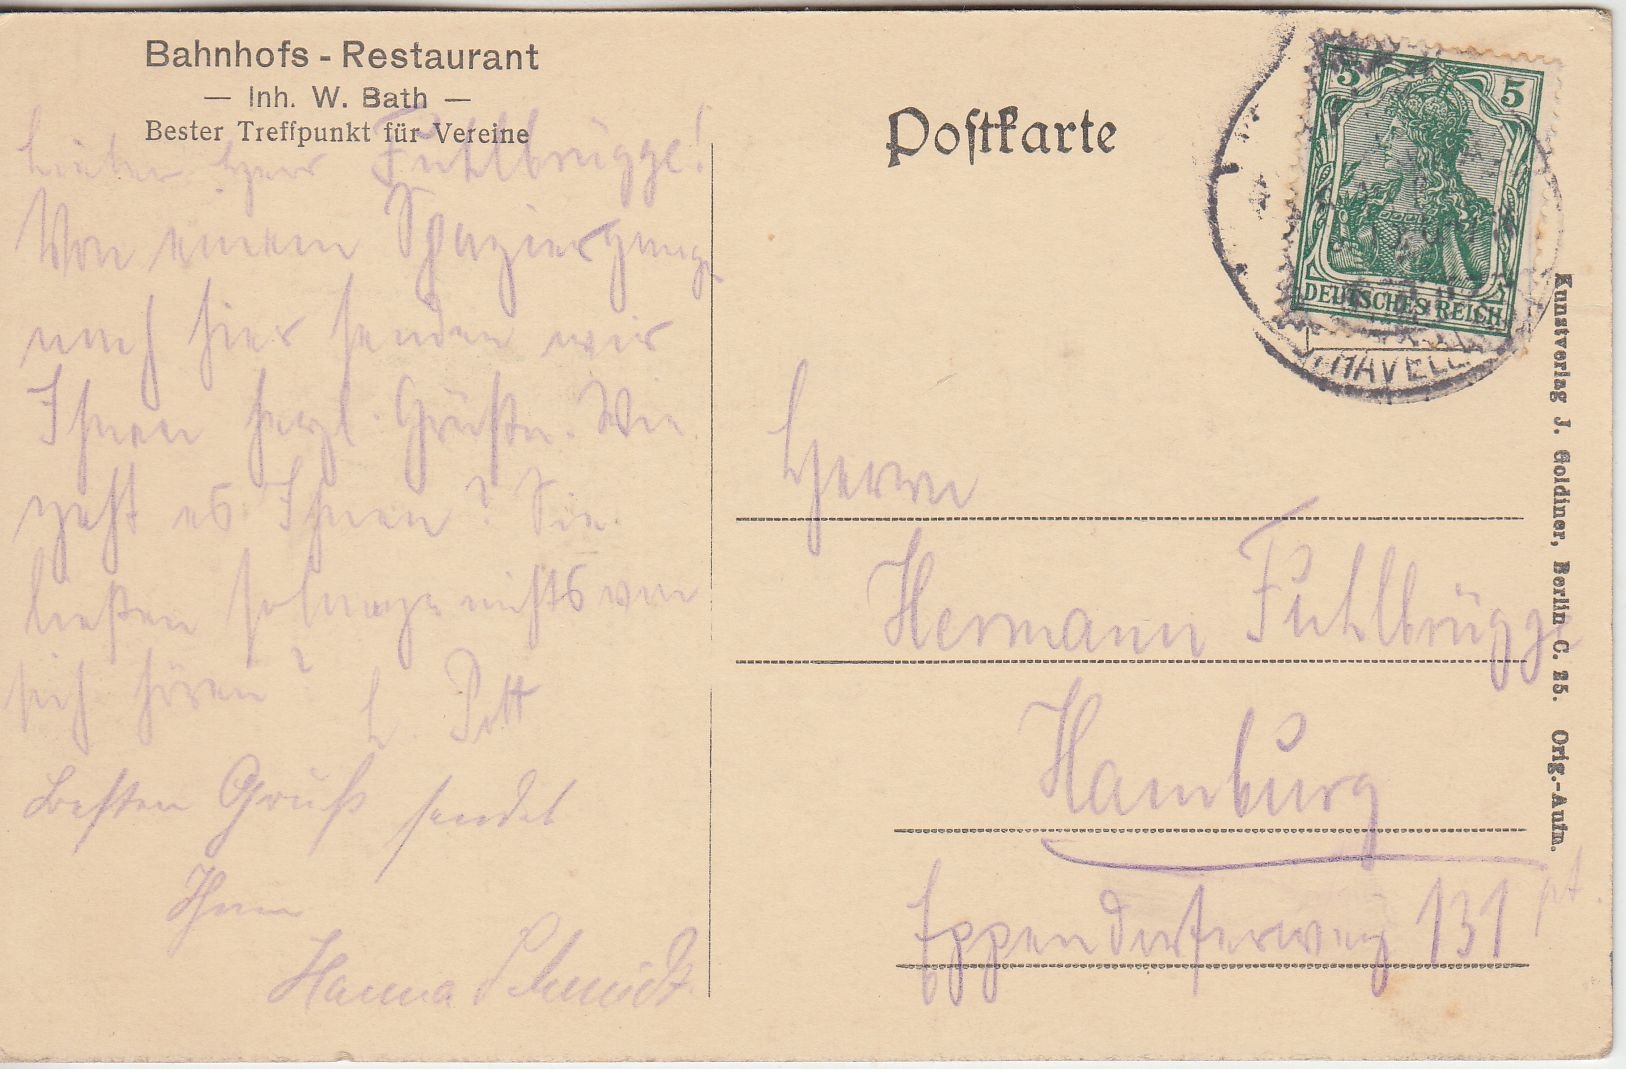 Bahnhofs - Restaurant
— Inh. W. Bath —
Bester Treffpunkt für Vereine
Lieber Herr Fuhlbrügge!
Von einem Spaziergange
nach hier senden wir
Ihnen herzl. Grüße. Wie
geht es Ihnen? Sie
ließen solange nichts von
sich hören? L. Pott
Besten Gruß sendet
Ihnen
Hanna Schmidt.
Postkarte
5 5
DEUTSCHES REICH
HAVEL
Herrn
Hermann Fuhlbrügge
Hamburg
Eppendorferweg 131 pt.
Kunstverlag J. Goldiner, Berlin C. 25. Orig.-Aufn.